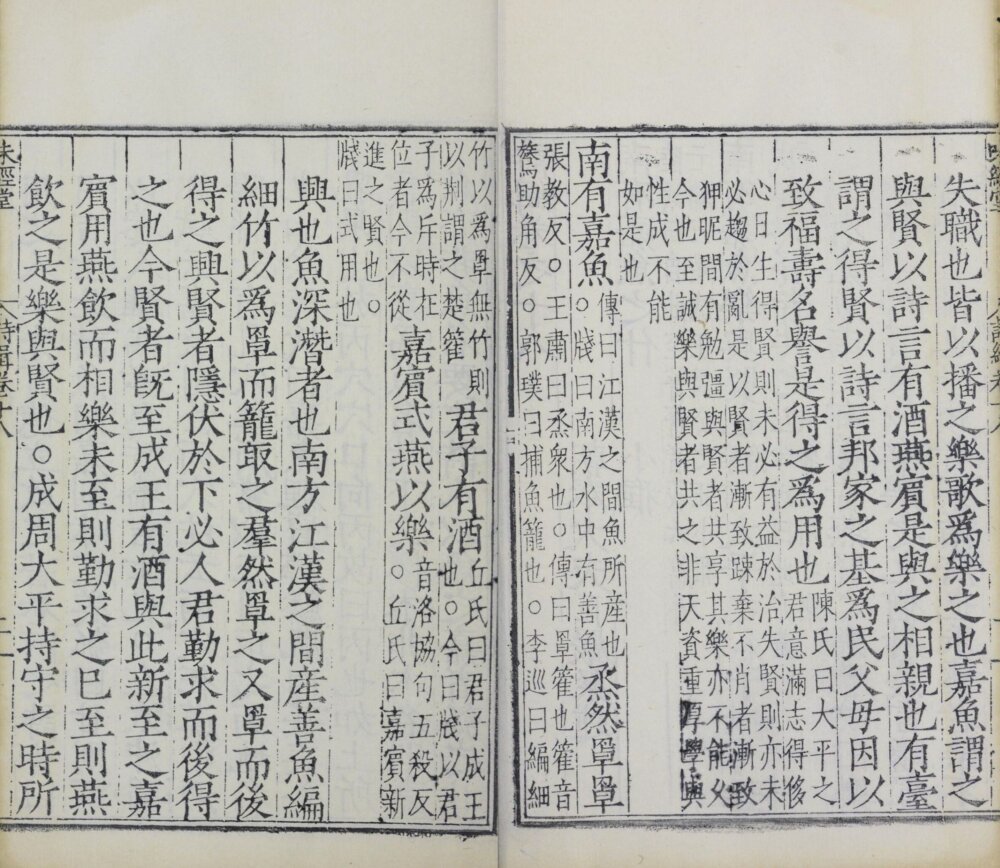 失職也皆以播之樂歌爲樂之也嘉魚謂之
與賢以詩言有酒燕賓是與之相親也有臺
謂之得賢以詩言邦家之基爲民父母因以
致福壽名譽是得之爲用也
陳氏曰大平之
君意滿志得侈
心日生得賢則未必有益於治失賢則亦未
必趨於亂是以賢者漸致踈棄不肖者漸致
狎昵間有勉彊與賢者共享其樂亦不能乆
今也至誠樂與賢者共之非天資重厚學與
性成不能
如是也
南有嘉魚
傳曰江漢之間魚所産也
○牋曰南方水中有善魚
烝然罩罩
張教反○王肅曰烝衆也○傳曰罩籗也籗音
鷟助角反○郭璞曰捕魚籠也○李巡曰編細
竹以爲罩無竹則
以荆謂之楚籗
君子有酒
丘氏曰君子成王
也○今曰牋以君
子爲斥時在
位者今不從
嘉賓式燕以樂
音洛協句五殺反
○丘氏曰嘉賓新
進之賢也○
牋曰式用也
興也魚深潛者也南方江漢之間産善魚編
細竹以爲罩而籠取之羣然罩之又罩而後
得之興賢者隱伏於下必人君勤求而後得
之也今賢者旣至成王有酒與此新至之嘉
賔用燕飲而相樂未至則勤求之巳至則燕
飲之是樂與賢也○成周大平持守之時所
味經堂
詩緝卷十八